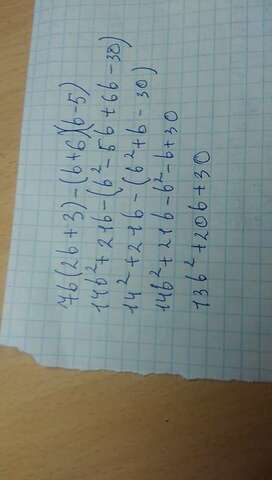 7b(2b+3)-(b+6)(b-5)
14b²+21b-(b²-5b+6b-30)
14²+21b-(b²+b-30)
14b²+21b-b²-b+30
13b²+20b+30